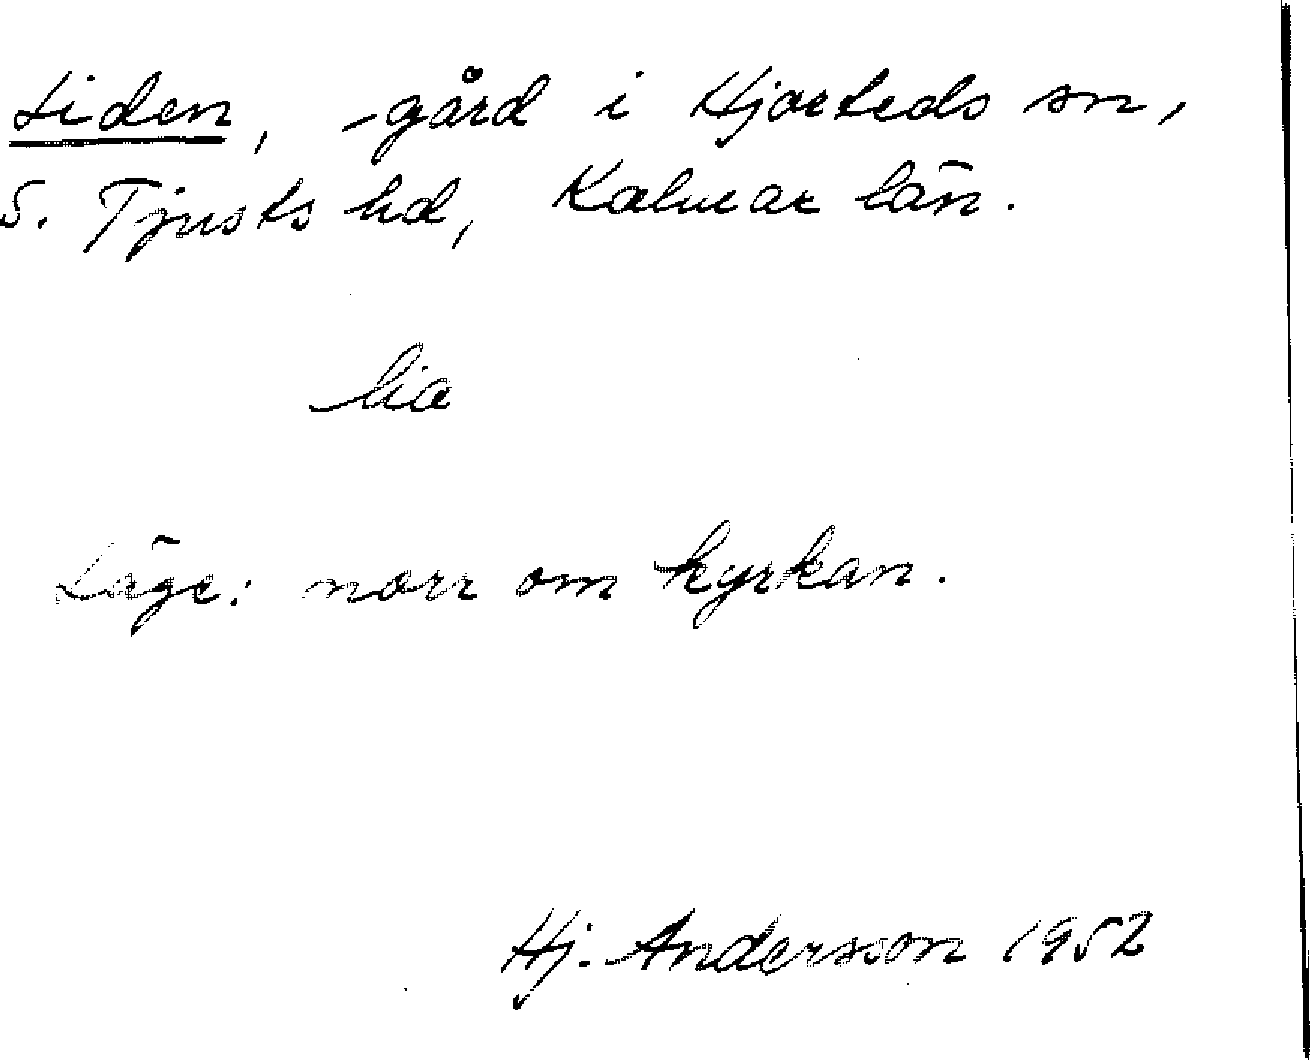 Liden, gård i Hjorteds sn,
S. Tjusts hd, Kalmar län.
lia
Läge: norr om kyrkan.
Hj. Andersson 1952